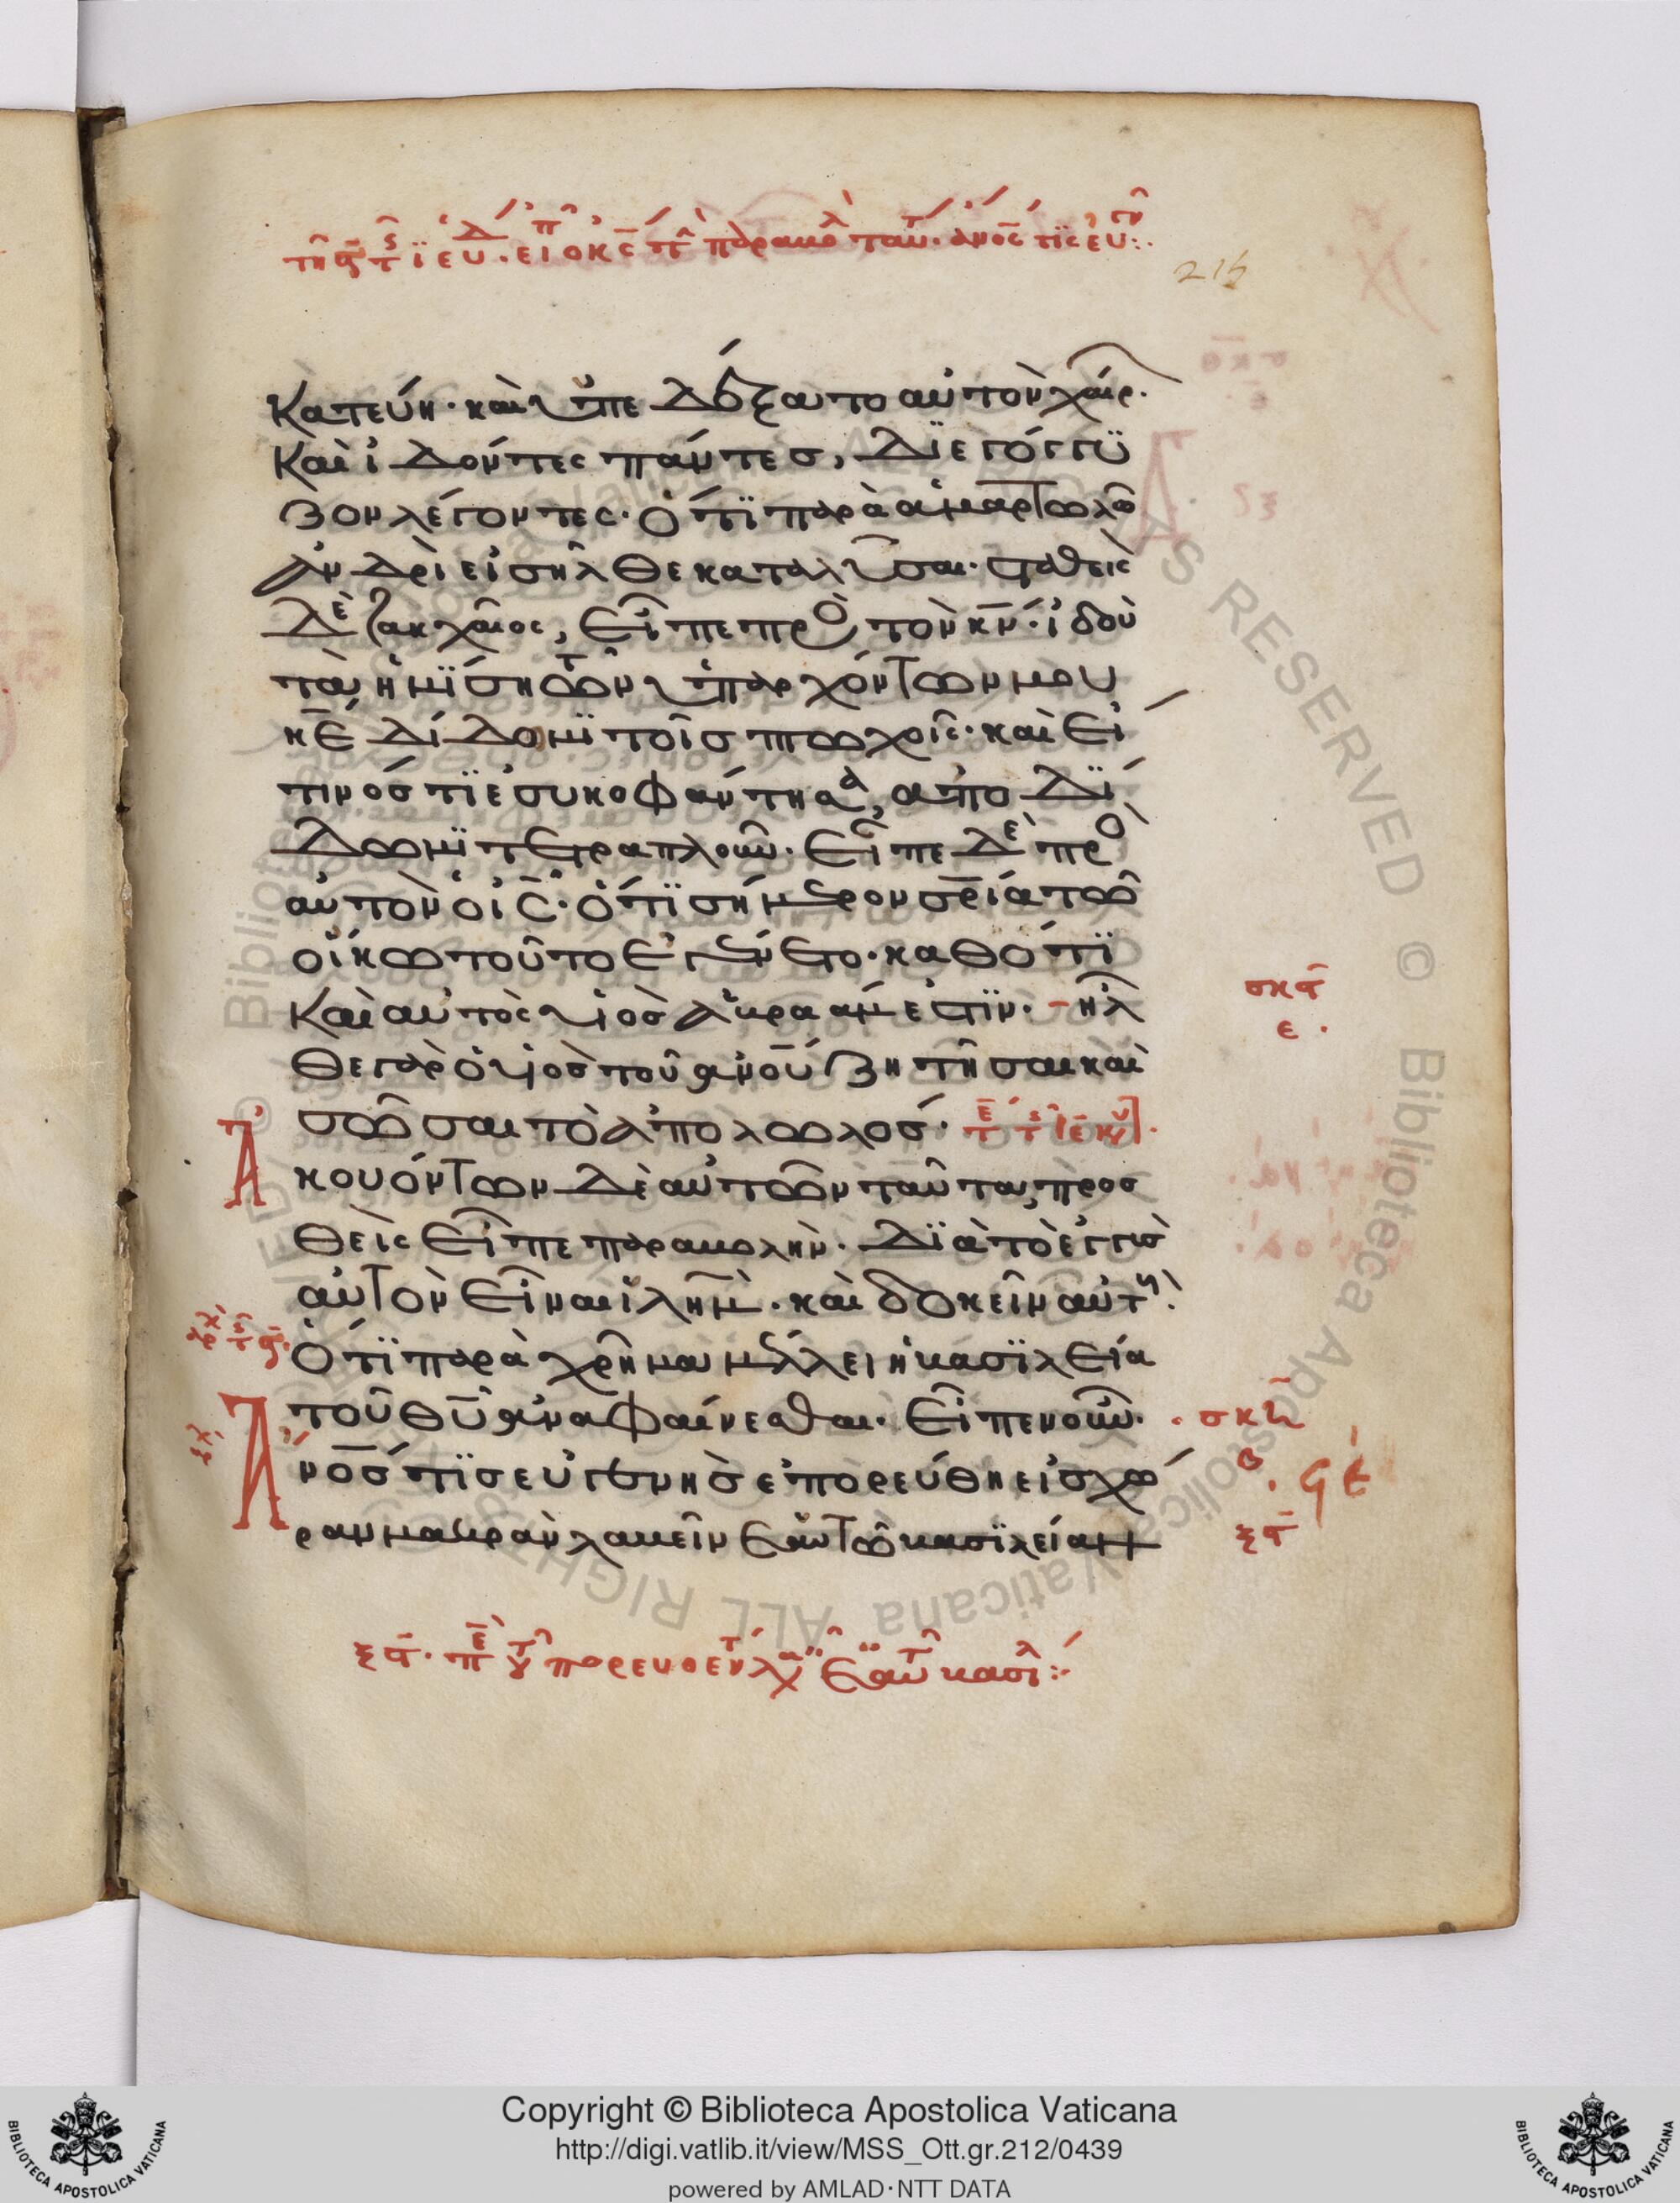 κατέβη· καὶ ὑπεδέξατο αὐτὸν χαίρ·
καὶ ἰδόντες πάντες, διεγόγγυ
ζον λέγοντες· ὅτι παρὰ ἁμαρτωλῶ
ἀνδρὶ εἰσῆλθε καταλῦσαι· σταθεὶς
δὲ ζακχαῖος, εἶπε πρὸ τὸν κν· ἰδοὺ
τὰ ἡμίση τῶν ὑπαρχόντων μου
κε δίδομι τοῖς πτωχοῖς· καὶ εἴ
τινός τι ἐσυκοφάντησα, ἀποδί
δωμι τετραπλοῦν· εἶπε δὲ πρὸ
αὐτὸν ὁ ις· ὅτι σήμερον σρία τῶ
οἴκω τούτο ἐγένετο· καθότι
καὶ αὐτὸς υἱὸς ἀβραάμ ἐστιν· ἦλ
θε γὰρ ὁ υἱὸς τοῦ ανου ζητῆσαι καὶ
σῶσαι τὸ ἀπολωλός·
ἀκουόντων δὲ αὐτῶν ταῦτα, προσ
θεὶς εἶπε παραβολήν· διὰ τὸ ἐγγὺς
αὐτὸν εἶναι ιλημ· καὶ δοκεῖν αὐτ
ὅτι παραχρῆμα μέλλει ἡ βασιλεία
τοῦ θυ ἀναφαίνεσθαι· εἶπεν οὖν·
ἄνος τις εὐγενὴς ἐπορεύθη εἰς χώ
ραν μακρὰν λαβεῖν ἑαυτῶ βασιλείαν
215
Copyright © Biblioteca Apostolica Vaticana
http://digi.vatlib.it/view/MSS_Ott.gr.212/0439
powered by AMLAD·NTT DATA
BIBLIOTECA APOSTOLICA VATICANA
BIBLIOTECA APOSTOLICA VATICANA